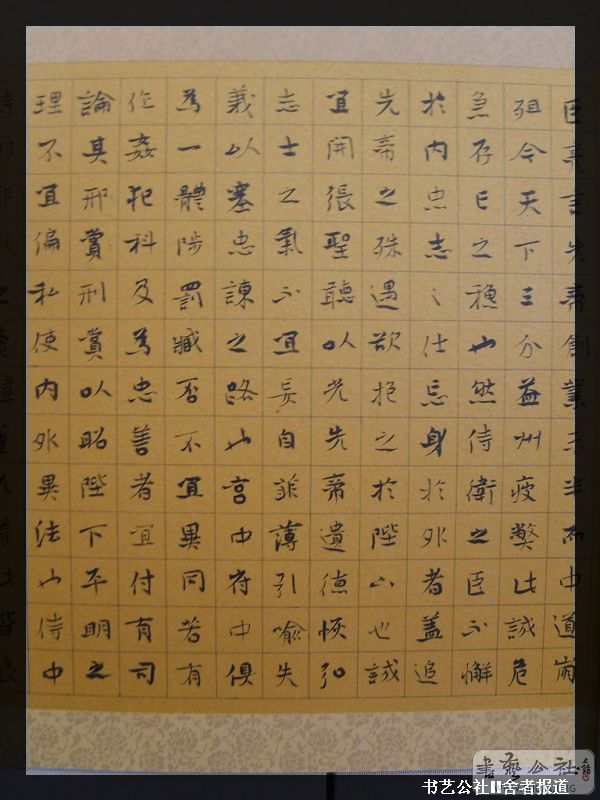 臣亮言先帝創業未半而中道崩
殂今天下三分益州疲弊此誠危
急存亡之穐也然侍衛之臣不懈
於內忠志之仕忘身於外者蓋追
先帝之殊遇欲抱之於陛下也誠
宜開張聖聽以光先帝遺德恢弘
志士之氣不宜妄自菲薄引喻失
義以塞忠諫之路也宮中府中俱
為一體陟罰臧否不宜異同若有
作姦犯科及為忠善者宜付有司
論其刑賞刑賞以昭陛下平明之
理不宜偏私使內外異法也侍中
書藝公社
书艺公社II舍者报道